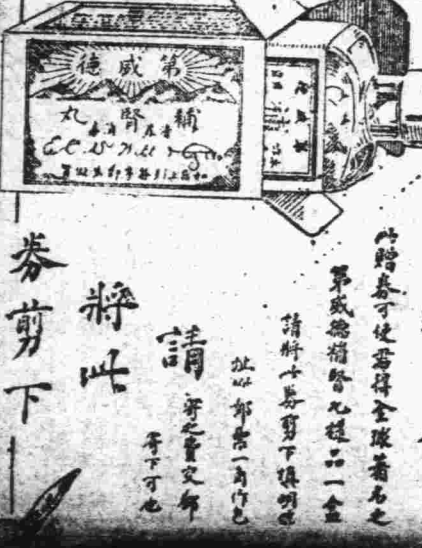 第威德
補腎丸
此贈券可使君得全球著名之
第威德補腎丸樣品一盒
請將此券剪下填明住
址以郵票一角作包
寄之費交郵
寄下可也
請
將此
券剪下